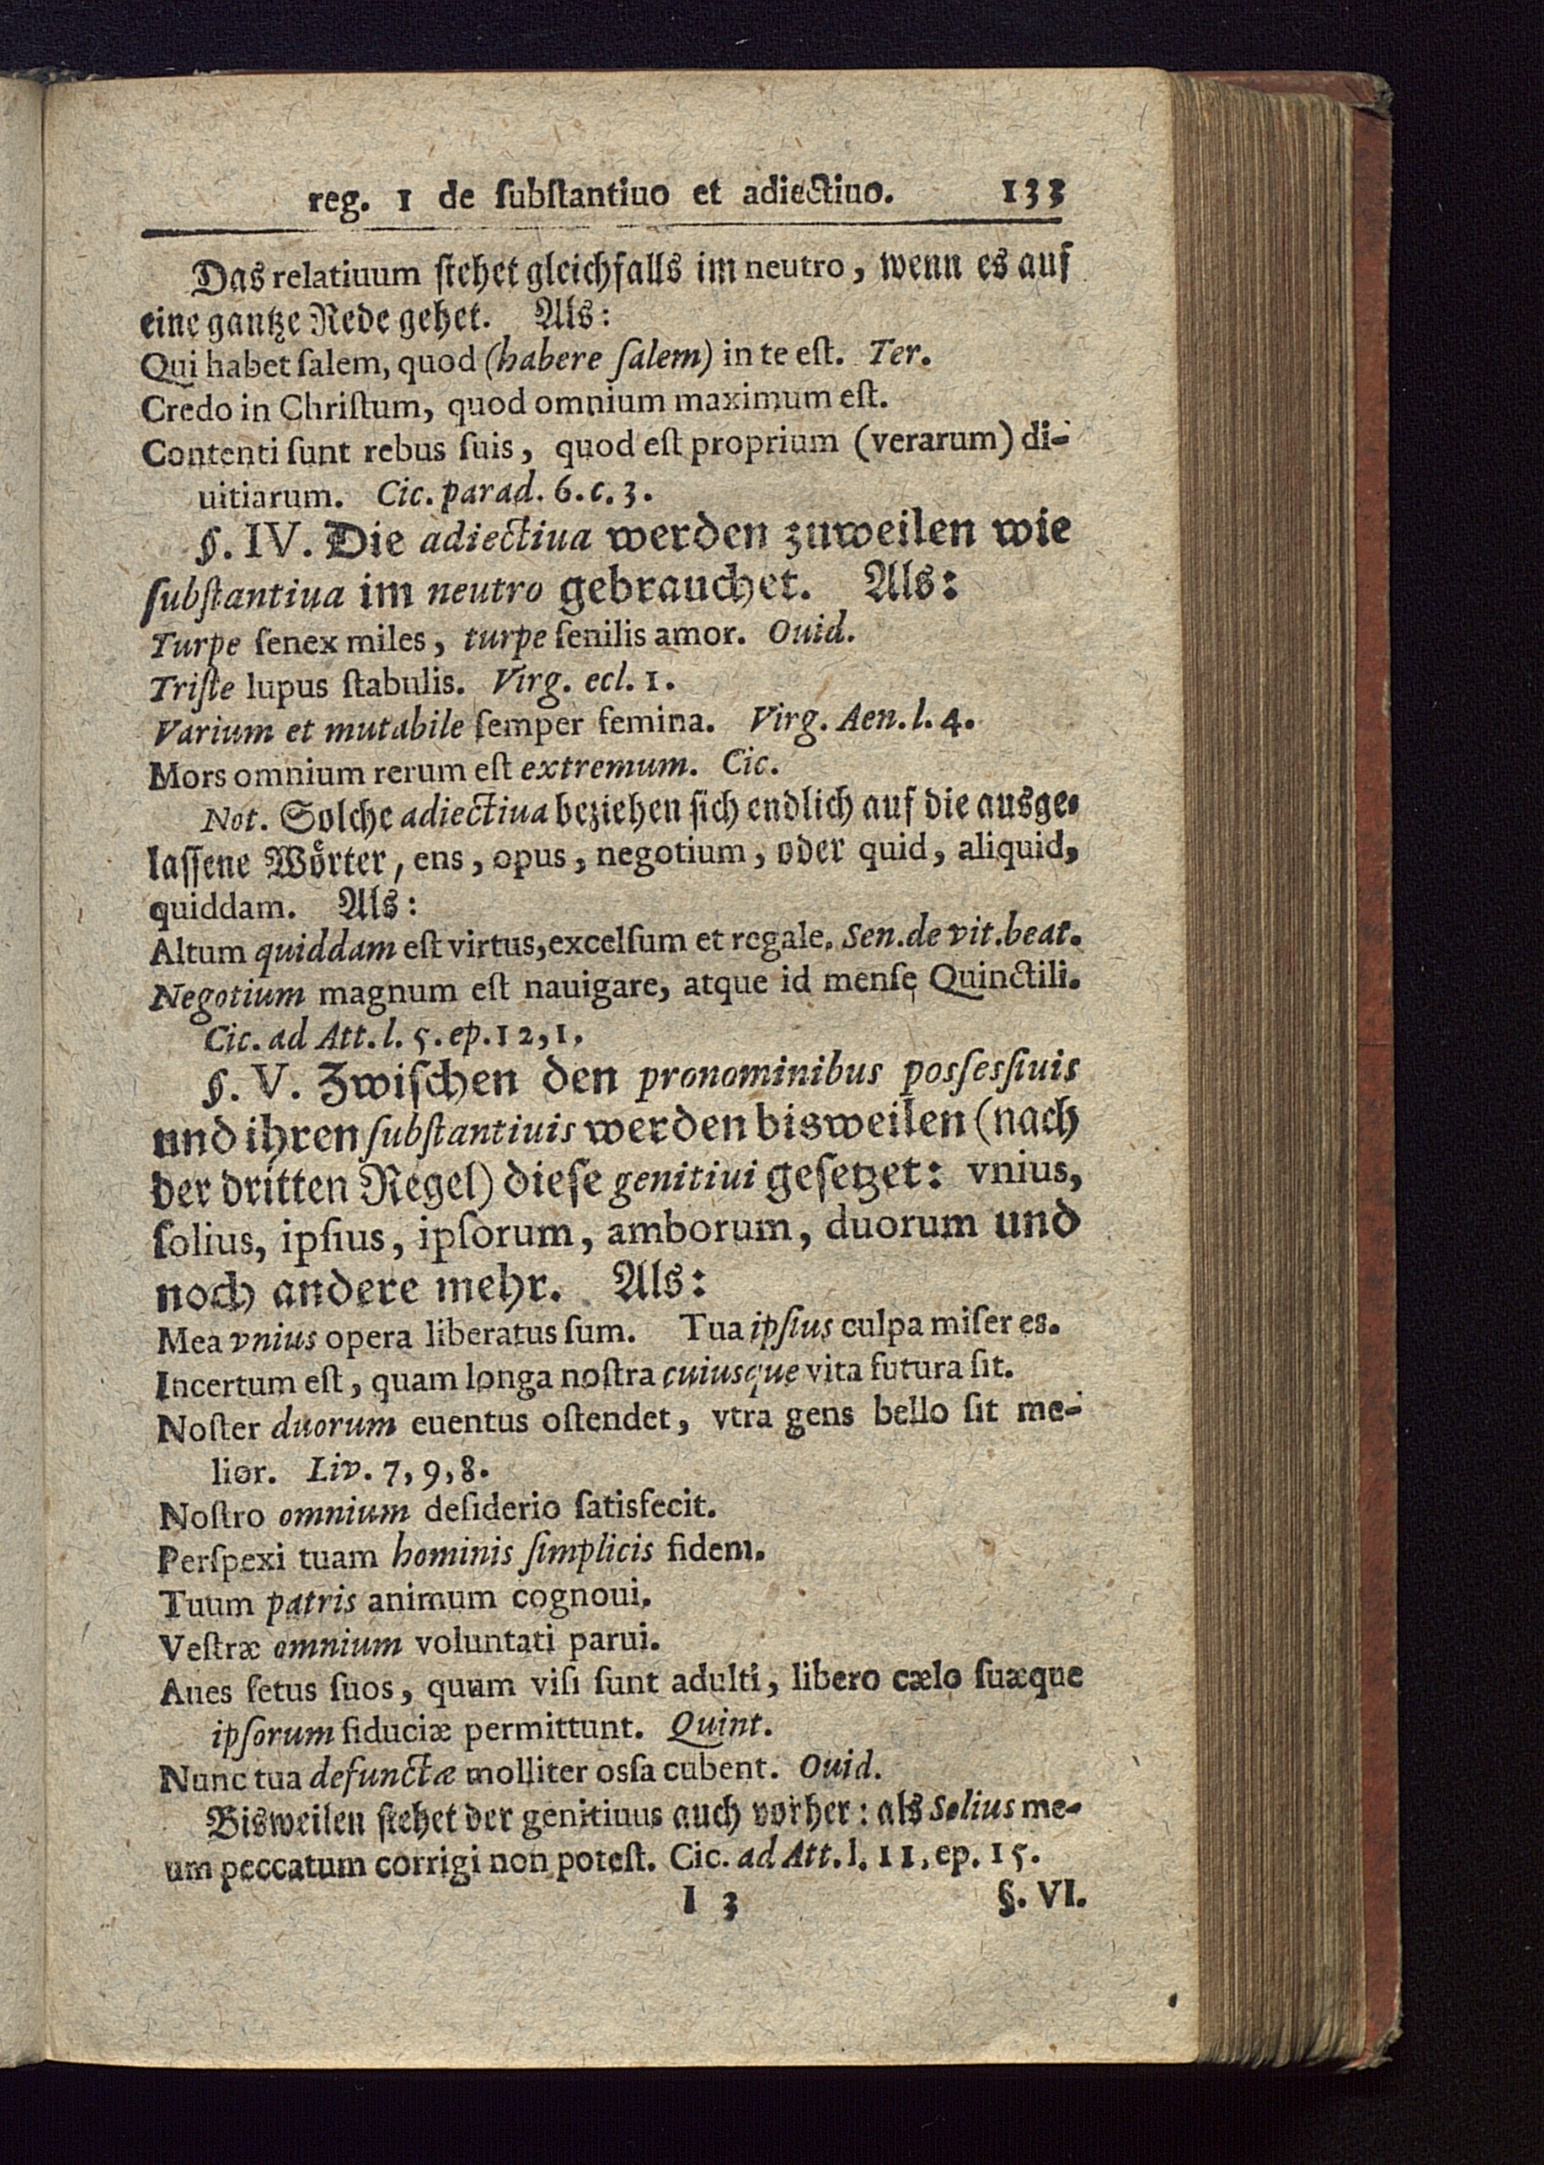 reg. 1 de ſubſtantiuo et adiectiuo. 133
Das relatiuum ſtehet gleichfalls im neutro, wenn es auf
eine gantze Rede gehet. Als:
Qui habet ſalem, quod (habere ſalem) in te eſt. Ter.
Credo in Chriſtum, quod omnium maximum eſt.
Contenti ſunt rebus ſuis, quod eſt proprium (verarum) di-
uitiarum. Cic. parad. 6. c. 3.
§. IV. Die adiectiua werden zuweilen wie
ſubſtantiua im neutro gebrauchet. Als:
Turpe ſenex miles, turpe ſenilis amor. Ouid.
Triſte lupus ſtabulis. Virg. ecl. 1.
Varium et mutabile ſemper femina. Virg. Aen. l. 4.
Mors omnium rerum eſt extremum. Cic.
Not. Solche adiectiua beziehen ſich endlich auf die ausge-
laſſene Wörter, ens, opus, negotium, oder quid, aliquid,
quiddam. Als:
Altum quiddam eſt virtus, excelſum et regale. Sen. de vit. beat.
Negotium magnum eſt nauigare, atque id menſe Quinctili.
Cic. ad Att. l. 5. ep. 12, 1.
§. V. Zwiſchen den pronominibus posſesſiuis
und ihren ſubſtantiuis werden bisweilen (nach
der dritten Regel) dieſe genitiui geſetzet: vnius,
ſolius, ipſius, ipſorum, amborum, duorum und
noch andere mehr. Als:
Mea vnius opera liberatus ſum. Tua ipſius culpa miſer es.
Incertum eſt, quam longa noſtra cuiusque vita futura ſit.
Noſter duorum euentus oſtendet, vtra gens bello ſit me-
lior. Liv. 7, 9, 8.
Noſtro omnium deſiderio ſatisfecit.
Perſpexi tuam hominis ſimplicis fidem.
Tuum patris animum cognoui.
Veſtræ omnium voluntati parui.
Aues fetus ſuos, quum viſi ſunt adulti, libero cælo ſuæque
ipſorum fiduciæ permittunt. Quint.
Nunc tua defunctæ molliter osſa cubent. Ouid.
Bisweilen ſtehet der genitiuus auch vorher: als Solius me-
um peccatum corrigi non poteſt. Cic. ad Att. l. 11. ep. 15.
I 3 §. VI.